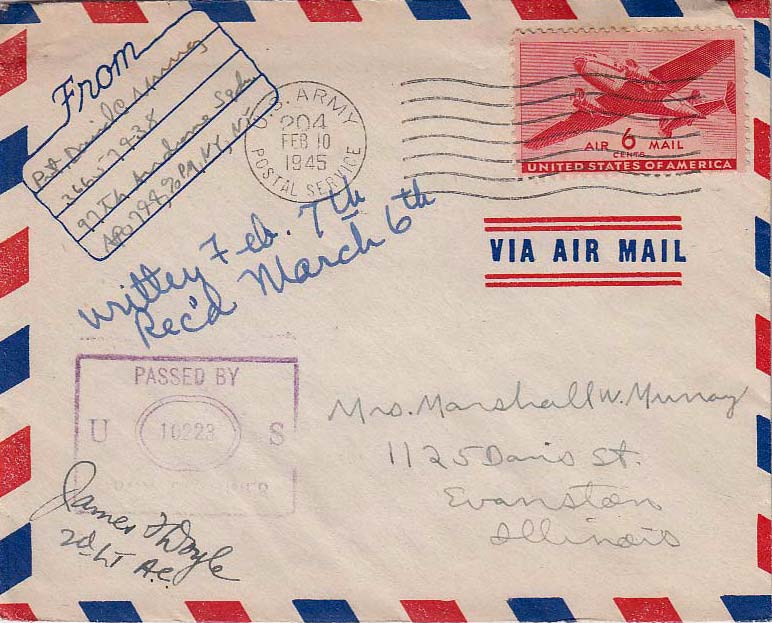 From
Pvt. Daniel C
36657938
97th Airdrome Sqdn
APO 794, % PM, NY, NY
U.S. ARMY
204
FEB 10
1945
POSTAL SERVICE
AIR 6 MAIL
CENTS
UNITED STATES OF AMERICA
VIA AIR MAIL
written Feb. 7th
Rec'd March 6th
PASSED BY
U 10223 S
ARMY EXAMINER
James F Doyle
2d Lt A.C.
Mrs. Marshall W. Murray
1125 Davis St.
Evanston
Illinois